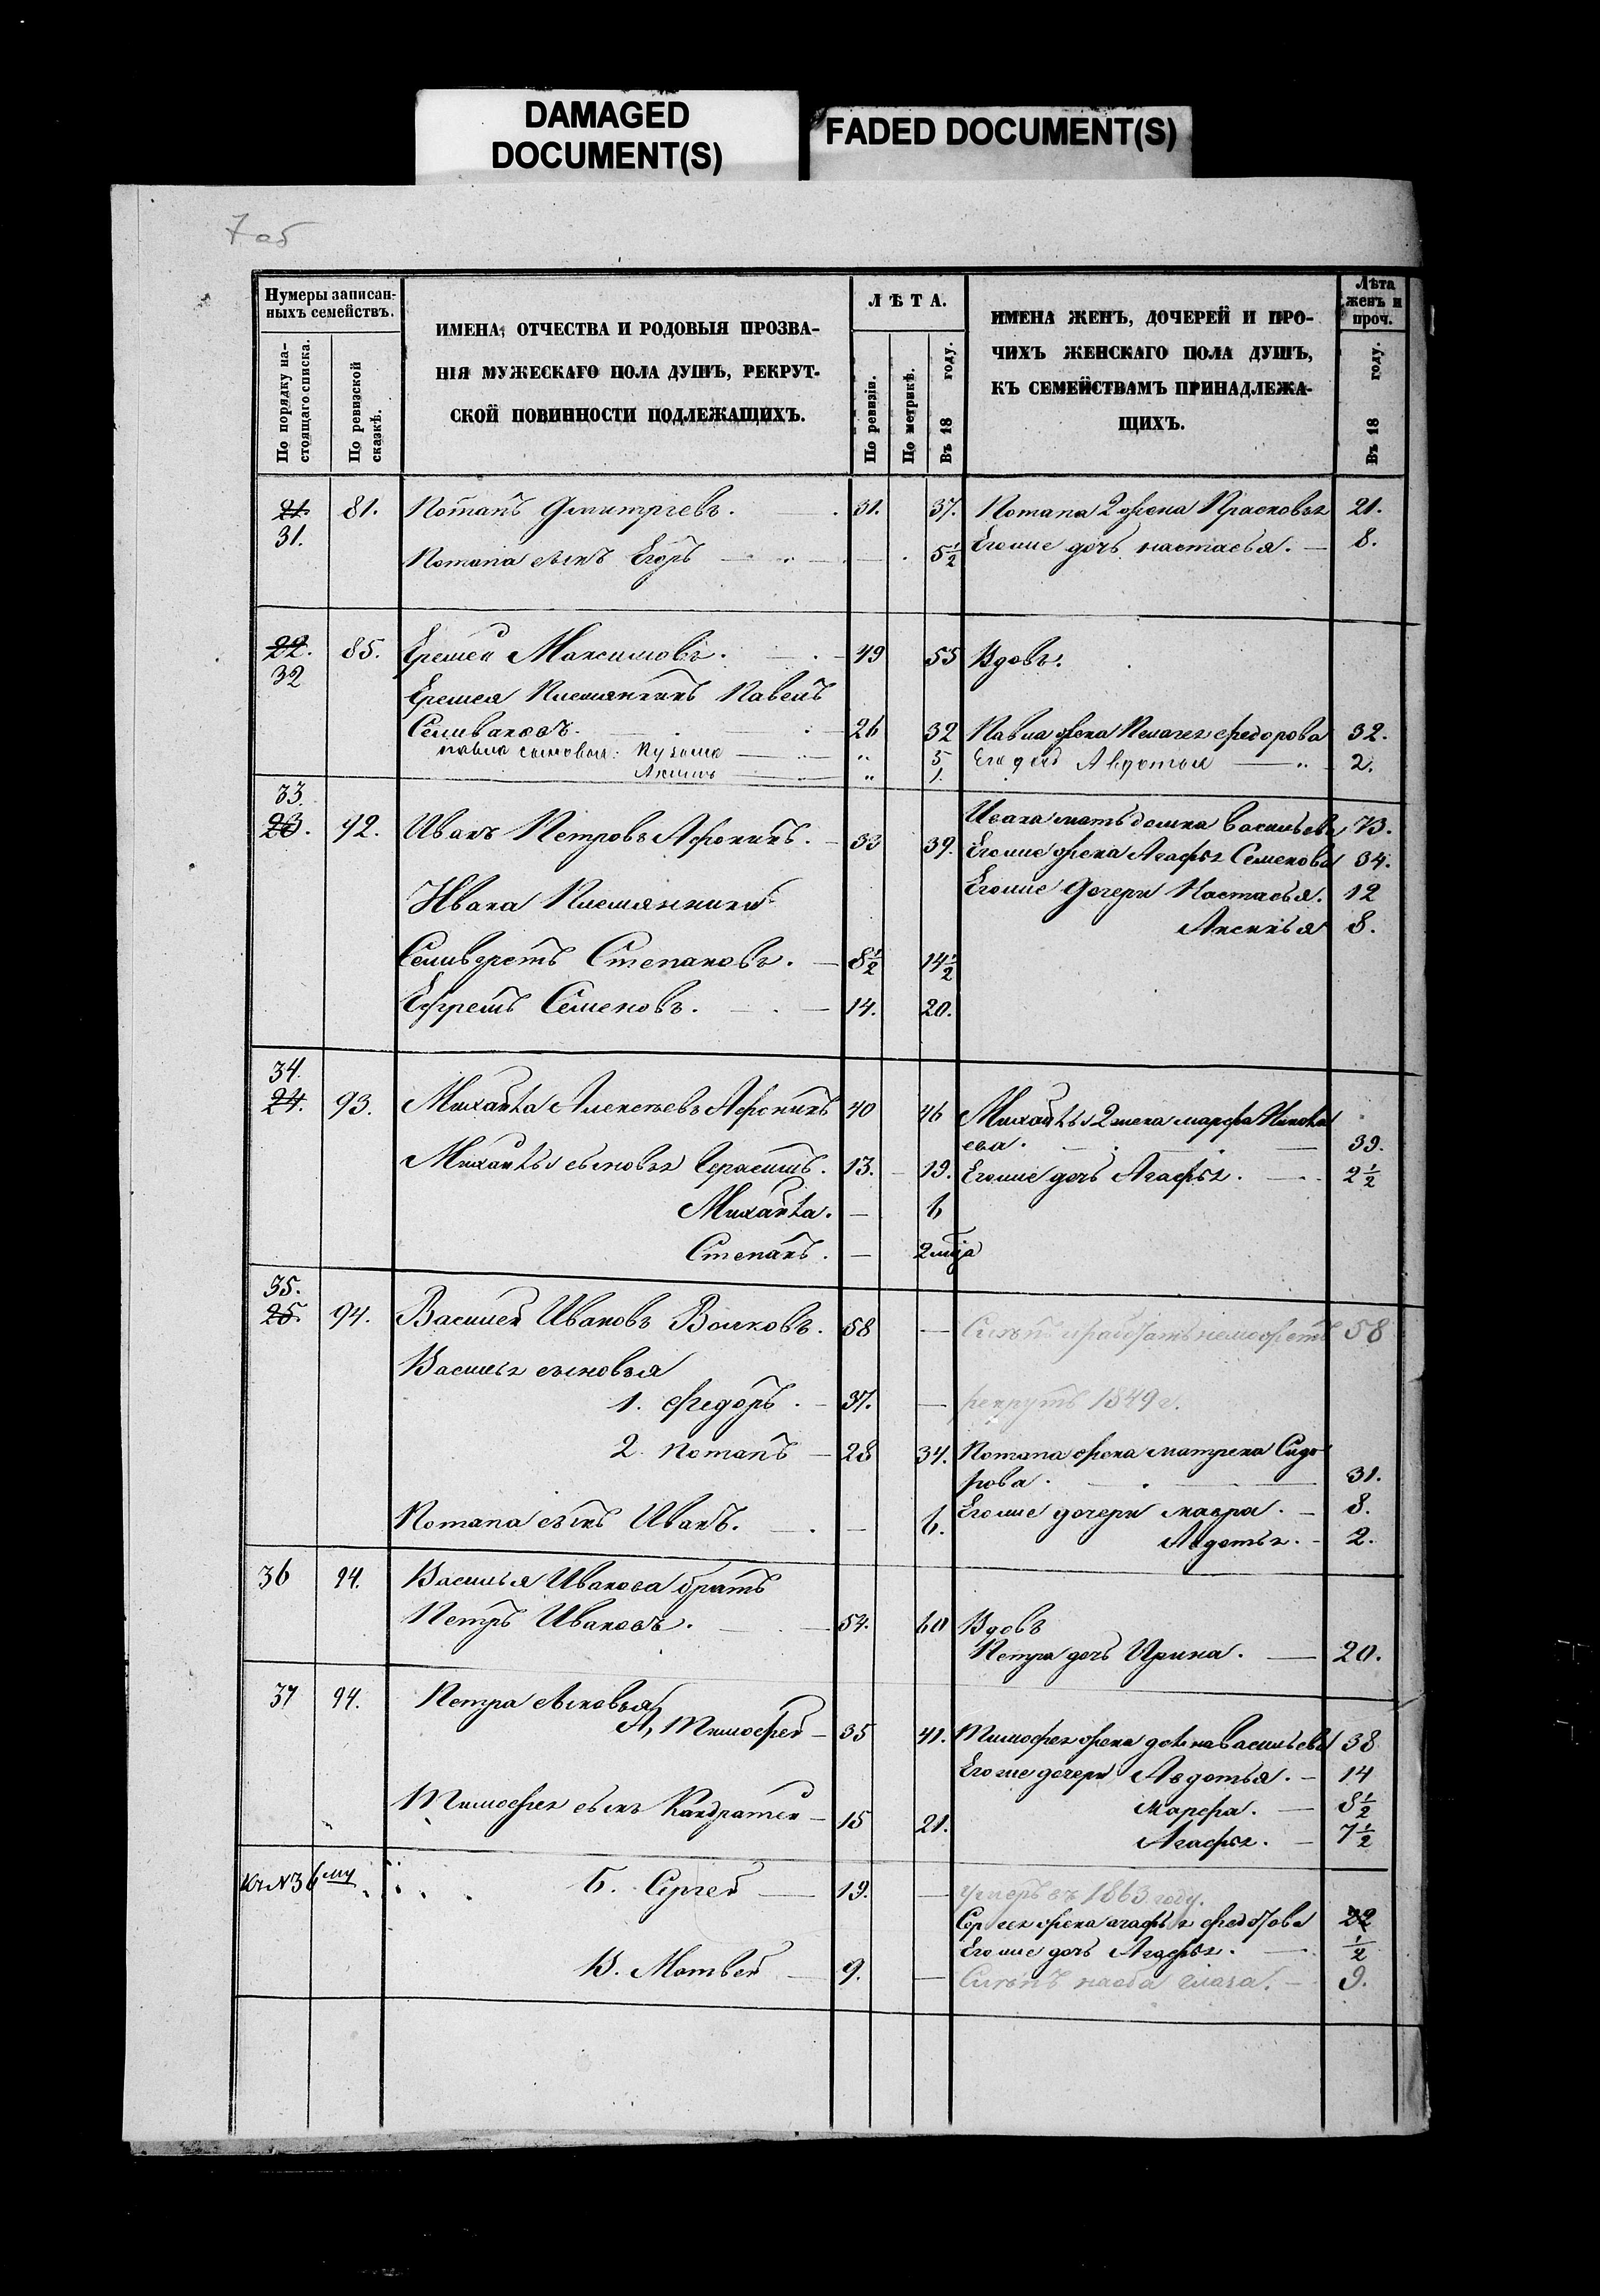 DAMAGED
DOCUMENT(S)
FADED DOCUMENT(S)
7 об
Нумеры записан-
ныхъ семействъ.
По порядку на-
стоящаго списка.
По ревизской
сказкѣ.
ИМЕНА, ОТЧЕСТВА И РОДОВЫЯ ПРОЗВА-
НІЯ МУЖЕСКАГО ПОЛА ДУШЪ, РЕКРУТ-
СКОЙ ПОВИННОСТИ ПОДЛЕЖАЩИХЪ.
ЛѢТА.
По ревизіи.
По метрикѣ.
Въ 18 году.
ИМЕНА ЖЕНЪ, ДОЧЕРЕЙ И ПРО-
ЧИХЪ ЖЕНСКАГО ПОЛА ДУШЪ,
КЪ СЕМЕЙСТВАМЪ ПРИНАДЛЕЖА-
ЩИХЪ.
Лѣта
женъ и
проч.
Въ 18 году.
21. 81. Потапъ Дмитріевъ. 31. 37. Потапа 2 жена Прасковья 21.
31.
Потапа сынъ Егоръ — — 5½ Егоже дочь настасья. — 8.
22. 85. Еремей Максимовъ. — 49 55 Вдовъ.
32
Еремея Племянникъ Павелъ
Селивановъ. 26 32 Павла жена Пелагея федорова 32.
павла сыновья: Кузьма — " 5 Его дочь Авдотья — " 2.
Акимъ — " 1.
33.
23. 92. Иванъ Петровъ Афонинъ. — 33 39. Ивана мать домна васильева 73.
Егоже жена Агафья Семенова 34.
Ивана Племянники Егоже Дочери Настасья. 12
Аксинья 8.
Селиверстъ Степановъ. — 8½ 14½
Ефремъ Семеновъ. — 14. 20.
34.
24. 93. Михайла Алексѣевъ Афонинъ 40 46 Михайлы 2 жена марфа
ева. — 39.
Михайлы сыновья Герасимъ. 13. — 19. Егоже дочь Агафья. — 2½
Михайла. — 6
Степанъ. — 2 мца
35.
25. 94. Василей Ивановъ Волковъ. 58 — Слѣпъ и работать неможетъ 58
Василья сыновья
1. Федоръ. — 37. — рекрутъ 1849 г.
2. потапъ — 28 34. Потапа жена матрена Сидо
рова. — 31.
Потапа сынъ Иванъ. — — 6. Егоже дочери мавра. — 8.
Авдотья. — 2.
36 94. Василья Иванова братъ
Петръ Ивановъ. — 54. 60 Вдовъ
Петра дочь Ирина. — 20.
37 94. Петра сыновья
А, Тимофей — 35 41. Тимофея жена домна васильева 38
Егоже дочери Авдотья. — 14
Тимофея сынъ Кандратей — 15 21. марфа. — 8½
Агафья. — 7½
Къ N 36му Б. Сергей — 19. — умеръ въ 1863 году.
Сергея жена агафья федотова 22
Егоже дочь Агафья. — ½
В. Матвей — 9. — Слѣпъ на оба глаза. — 9.